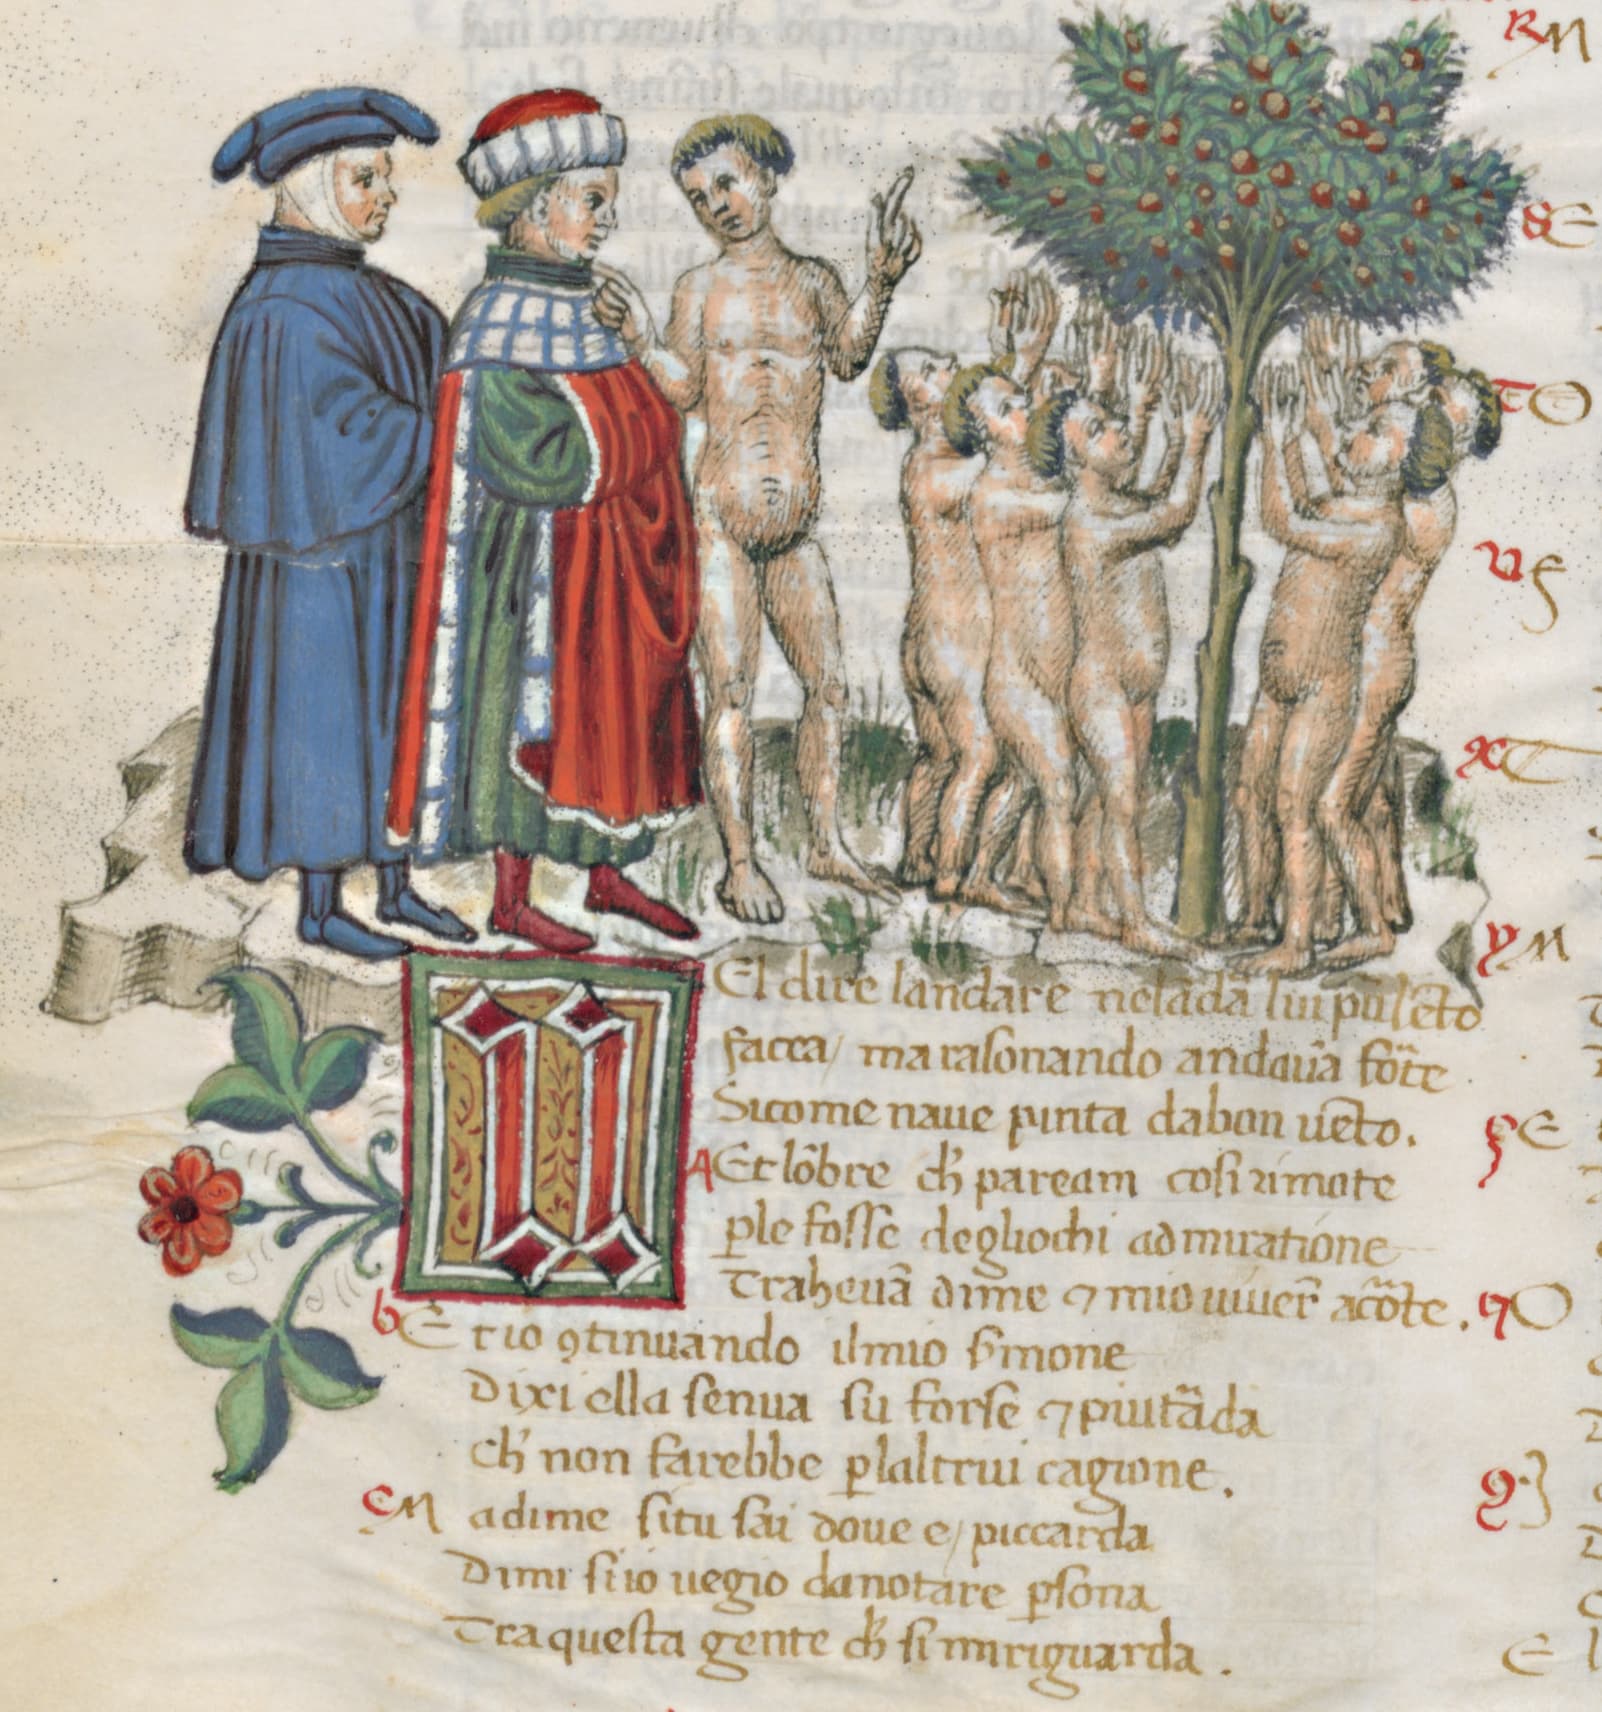 N
El dire landare nelãdã lui piu lẽto
facca/ ma rasonando andauã forte
Sicome naue pinta da bon uẽto.
A Et lõbre ch' paream cosi rimorte
ꝑle fosse degliochi admiratione
Traheuã dime ⁊ mio uiuer̃ acorte.
b E t io ꝯtinuando ilmio ẜmone
Dixi ella senua su forse ⁊ piu tãda
ch' non farebbe ꝑlaltrui cagione.
c M adime situ sai doue e/ piccarda
Dimi siio uegio danotare ꝑsona
Tra questa gente ch' si mriguarda.
R M
S E
T O
V S
X T
Y M
E
O
E